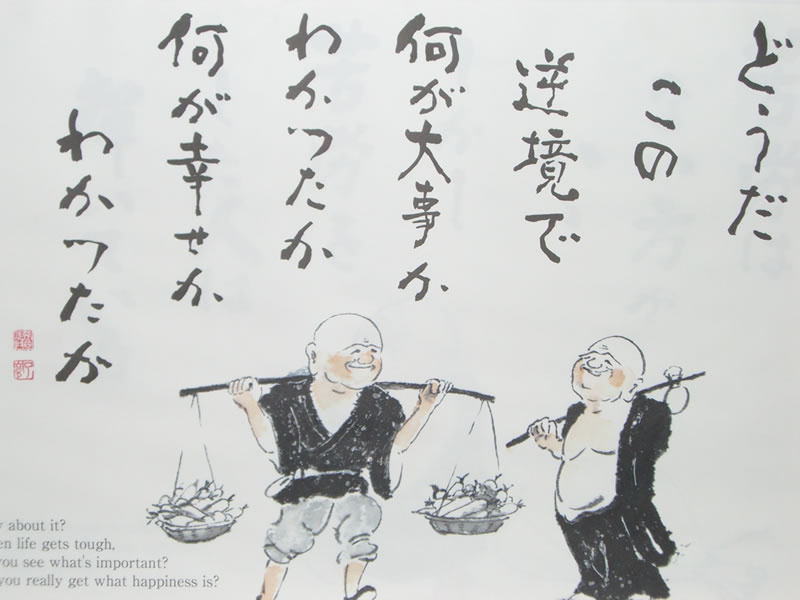 どうだ
この
逆境で
何が大事か
わかったか
何が幸せか
わかったか
about it?
life gets tough,
you see what's important?
you really get what happiness is?